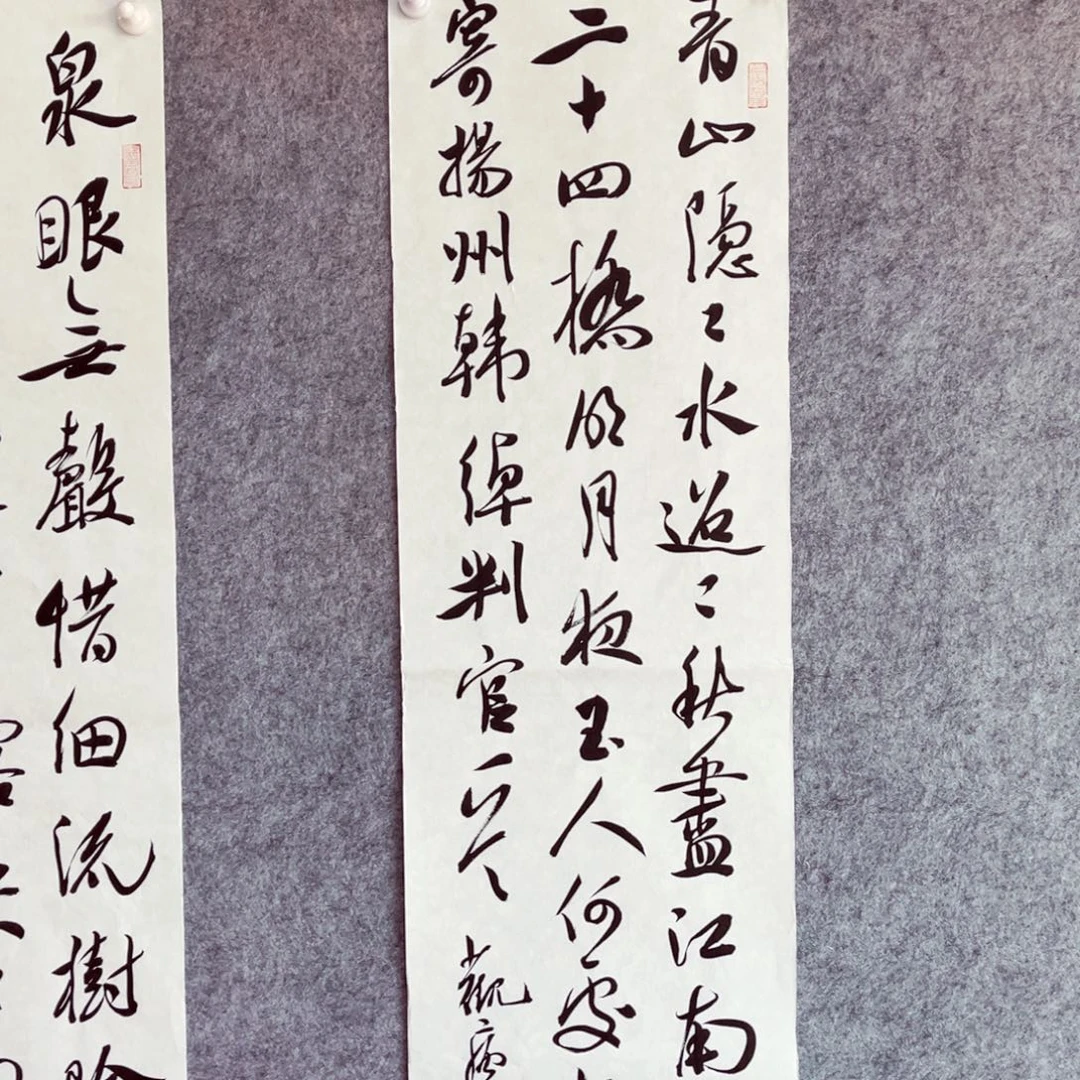 青山隠〻水迢〻秋盡江南
二十四橋明月夜玉人何處
寄揚州韓绰判官一首
泉眼無聲惜细流樹陰